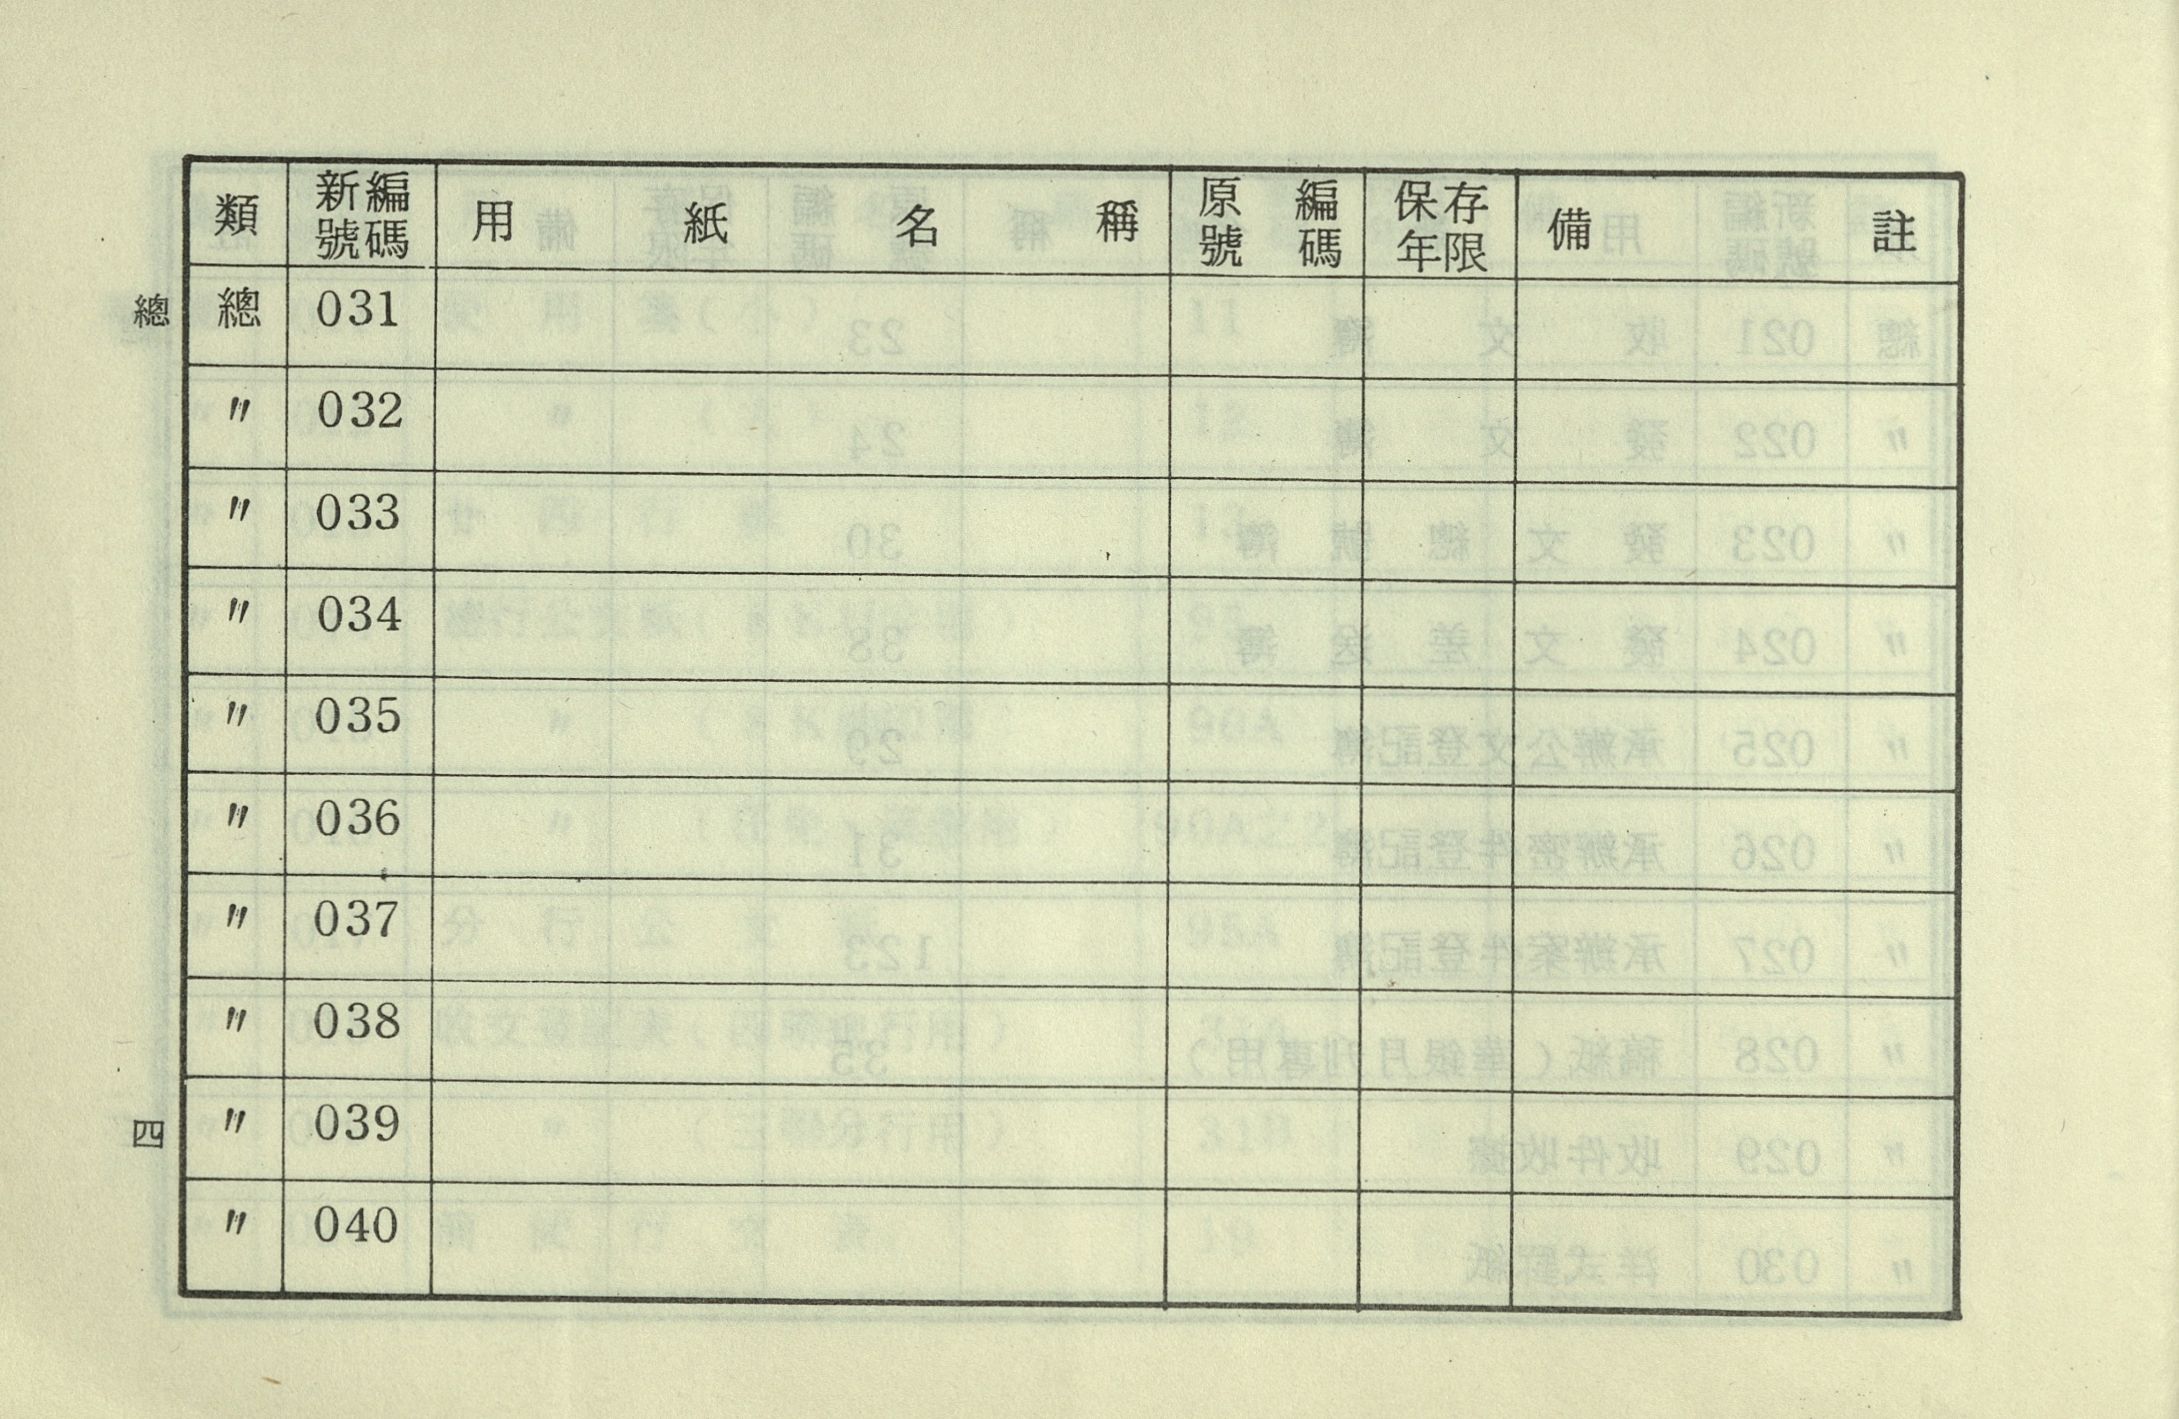 類 新編號碼 用紙名稱 原編號碼 保存年限 備註
總 031
〃 032
〃 033
〃 034
〃 035
〃 036
〃 037
〃 038
〃 039
〃 040
總
四